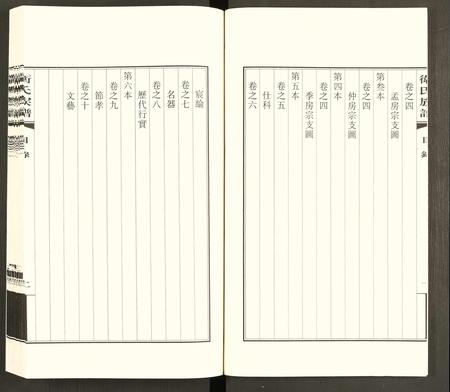 衛氏族譜 目錄
卷之四
孟房宗支圖
第叁本
卷之四
仲房宗支圖
第四本
卷之四
季房宗支圖
第五本
卷之五
仕科
卷之六
宸綸
卷之七
名器
卷之八
歷代行實
第六本
卷之九
節孝
卷之十
文藝
氏族譜 目錄